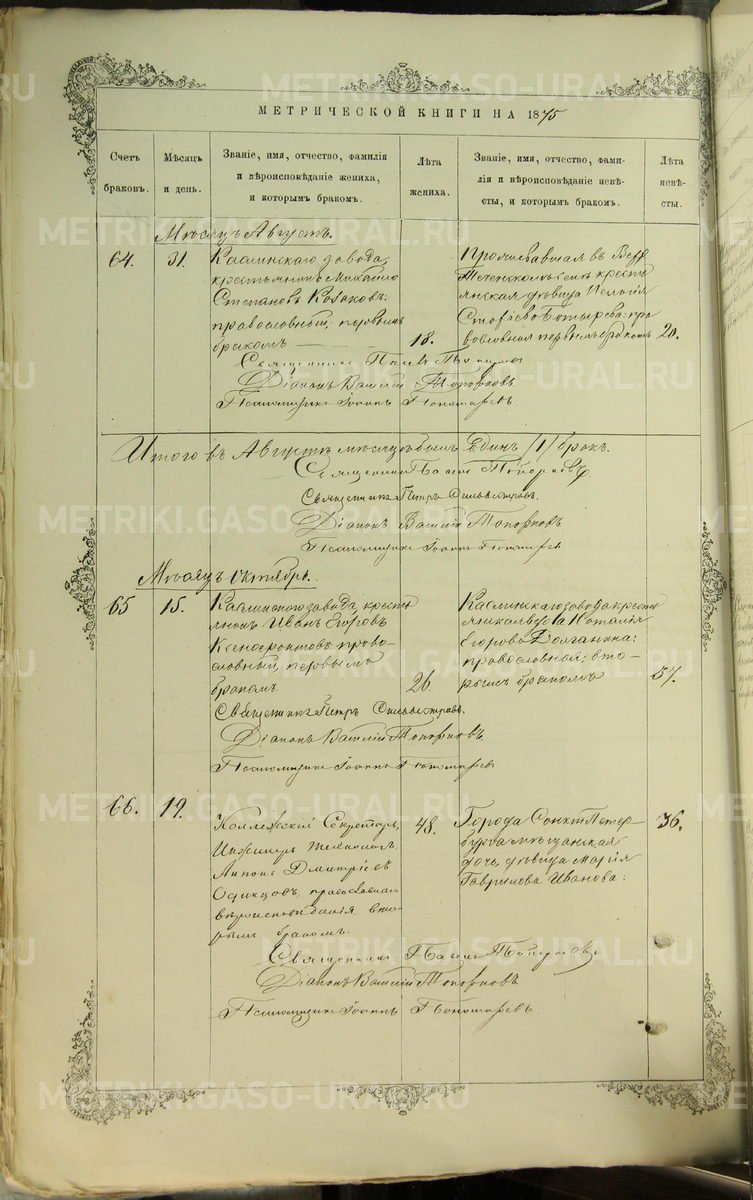 МЕТРИЧЕСКОЙ КНИГИ НА 1875
Счетъ браковъ.
Мѣсяцъ и день.
Званіе, имя, отчество, фамилія
и вѣроисповѣданіе жениха,
и которымъ бракомъ.
Лѣта жениха.
Званіе, имя, отчество, фами-
лія и вѣроисповѣданіе невѣ-
сты, и которымъ бракомъ.
Лѣта невѣ-
сты.
Мѣсяцъ Августъ.
64. 31.
Каслинскаго завода,
крестьянинъ Михаилъ
Степановъ Козаковъ.
православный, первымъ
бракомъ
18.
Проживавшая въ
кресть
янская дѣвица
пра
вославная первымъ бракомъ
20.
Священникъ Павелъ Топорковъ
Діаконъ Василій Топорковъ
Псаломщикъ Іоаннъ Пономаревъ.
Итого въ Августѣ мѣсяцѣ былъ Одинъ /1/ бракъ.
Священникъ Павелъ Топорковъ
Священникъ Петръ Сильвестровъ.
Діаконъ Василій Топорковъ
Псаломщикъ Іоаннъ Пономаревъ
Мѣсяцъ Октябрь.
65 15.
Каслинскаго завода, кресть
янинъ Иванъ Егоровъ
Ксенофонтовъ право-
славный, первымъ
бракомъ.
26.
Каслинскаго завода крестя
янская Наталія
Егорова
православная; вто-
рымъ бракомъ
Священникъ Петръ Сильвестровъ.
Діаконъ Василій Топорковъ.
Псаломщикъ Іоаннъ Пономаревъ
66. 19.
Коллежскій Секретарь,
Инженеръ Технологъ
Антонъ Дмитріевъ
Одинцовъ, православнаго
вѣроисповѣданія вто-
рымъ бракомъ.
48.
Города СанктПетер-
бурга мѣщанская
дочь, дѣвица Марія
Гаврилова Иванова.
36.
Священникъ Павелъ Топорковъ.
Діаконъ Василій Топорковъ
Псаломщикъ Іоаннъ Пономаревъ
METRIKI.GASO-URAL.RU